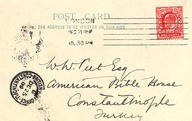 POST CARD
THE ADDRESS TO BE WRITTEN ON THIS SIDE
LONDON
W. W. Peet Esq
American Bible House
Constantinople
Turkey